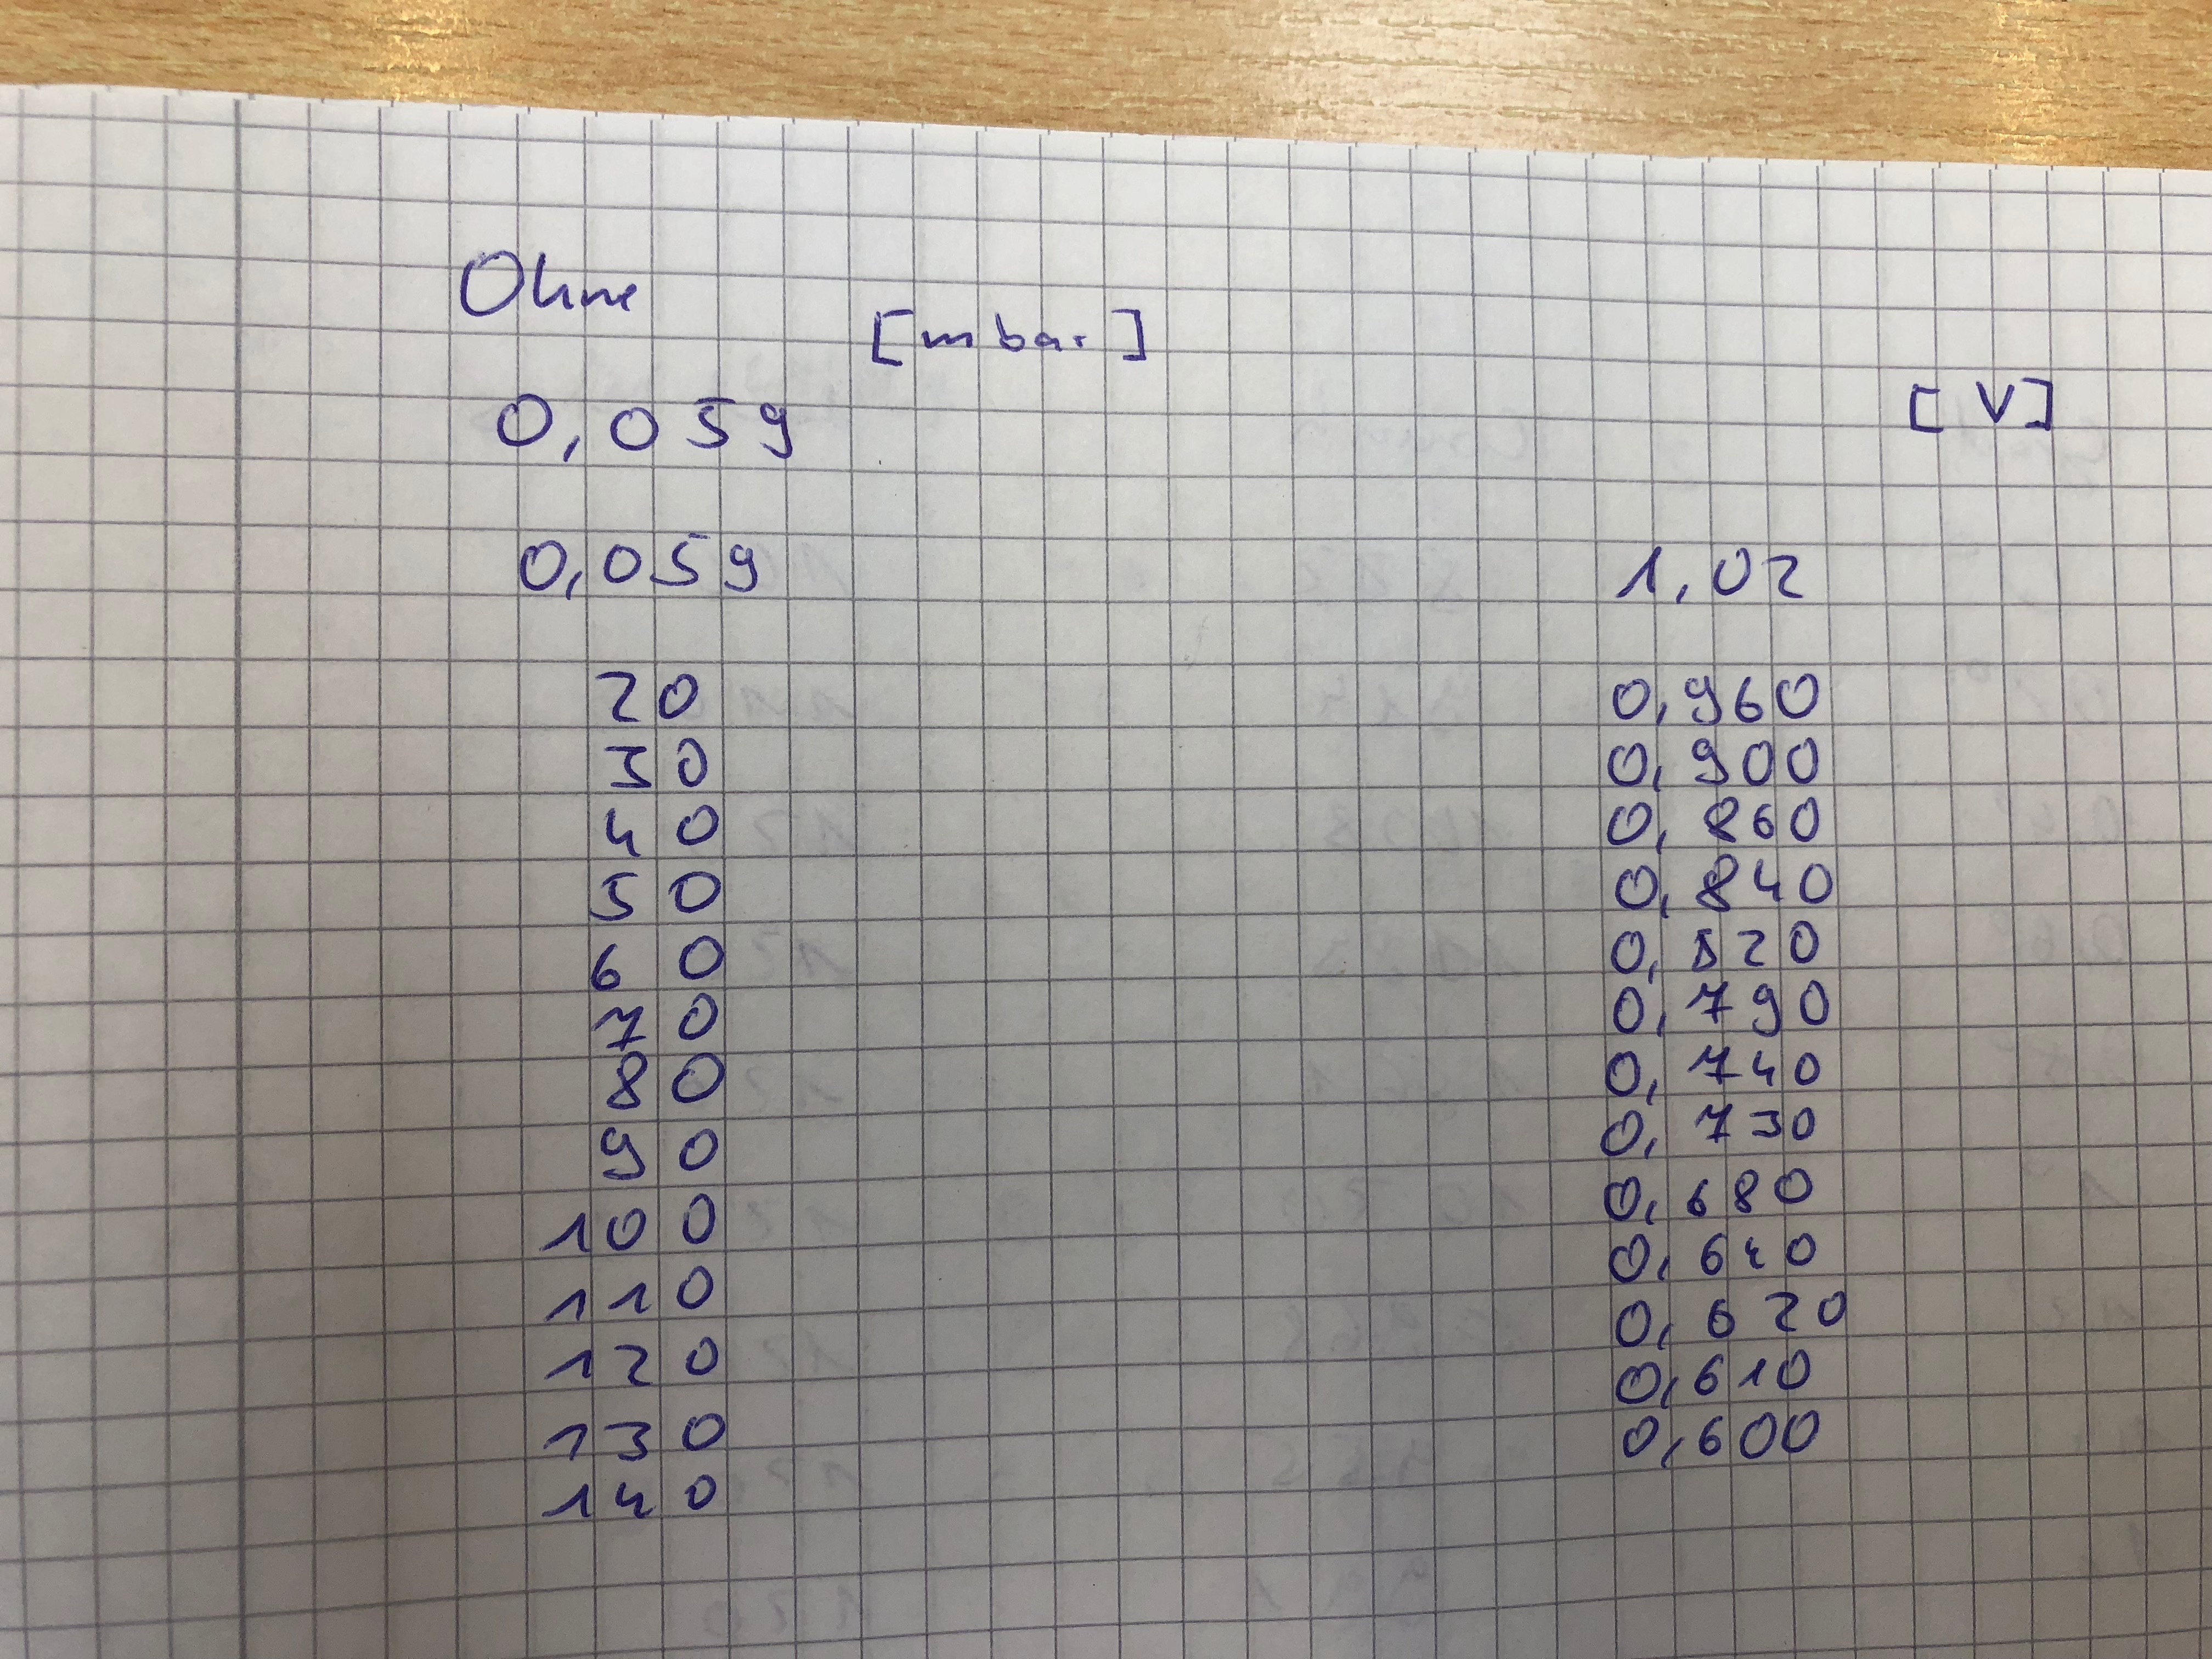 Ohne
[mbar]
0,059 [V]
0,059 1,02
20 0,960
30 0,900
40 0,860
50 0,840
60 0,820
70 0,790
80 0,740
90 0,730
100 0,680
110 0,640
120 0,620
130 0,610
140 0,600